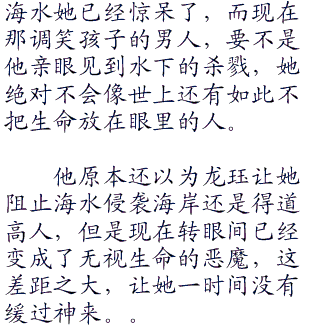 海水她已经惊呆了，而现在
那调笑孩子的男人，要不是
他亲眼见到水下的杀戮，她
绝对不会像世上还有如此不
把生命放在眼里的人。
他原本还以为龙珏让她
阻止海水侵袭海岸还是得道
高人，但是现在转眼间已经
变成了无视生命的恶魔，这
差距之大，让她一时间没有
缓过神来。。